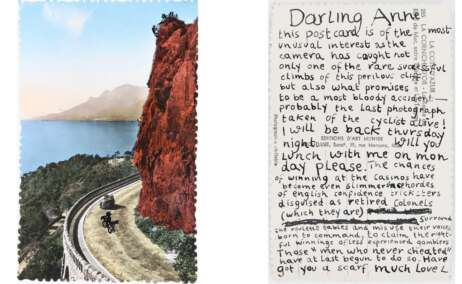 Darling Anne
this postcard is of the most
unusual interest as the
camera has caught not
only one of the rare successful
climbs of this perilous cliff
but also what promises
to be a most bloody accident
probably the last photograph
taken of the cyclist alive!
I will be back thursday
night will you
lunch with me on mon
day please. The chances
of winning at the casinos have
become even slimmer as hordes
of english confidence tricksters
disguised as retired Colonels
(which they are) surround
the roulette tables and misuse their voices
born to command, to claim the right-
ful winnings of less experienced gamblers
Those "men who never cheated"
have at last begun to do so. Have
got you a scarf much love L
LA CÔTE D'AZUR
EDITIONS D'ART MUNIER